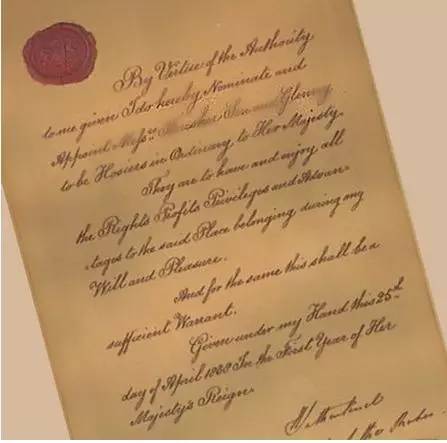 By Virtue of the Authority
to me given I do hereby Nominate and
Appoint Messrs Son and Glenny
to be Hosiers in Ordinary to Her Majesty.
They are to have and enjoy all
the Rights Profits Privileges and Advan-
-tages to the said Place belonging during my
Will and Pleasure.
And for the same this shall be a
sufficient Warrant.
Given under my Hand this 25th
day of April 1838 In the First Year of Her
Majesty's Reign.